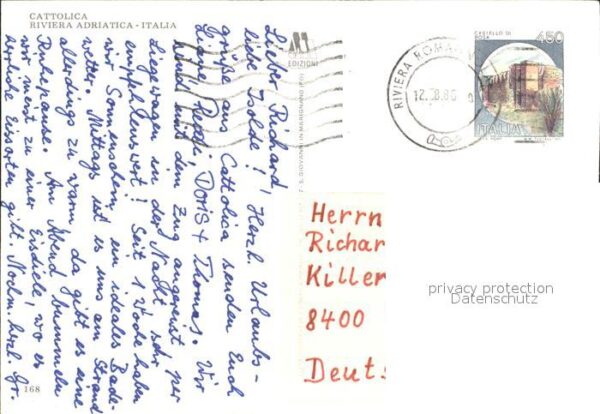 CATTOLICA
RIVIERA ADRIATICA · ITALIA
Lieber Richard!
liebe Isolde! Herzl. Urlaubs-
grüße aus Cattolica senden Euch
Doris + Thomas. Wir
sind mit dem Zug angereist per
Liegewagen in der Nacht sehr
empfehlenswert! Seit 1 Woche haben
wir Sonnenschein, ein ideales Bade-
wetter. Mittags ist es uns am Strand
allerdings zu warm, da gibt es eine
Ruhepause. Am Abend bummeln
wir meist zu einer Eisdiele, wo es
herrliche Eissorten gibt. Nochm. herzl. Gr.
168
EDIZIONI
S. GIOVANNI IN MARIGNANO
RIVIERA ROMAG
CASTELLO DI
450
ITALIA
Herrn
Richar
Killer
8400
Deuts
privacy protection
Datenschutz